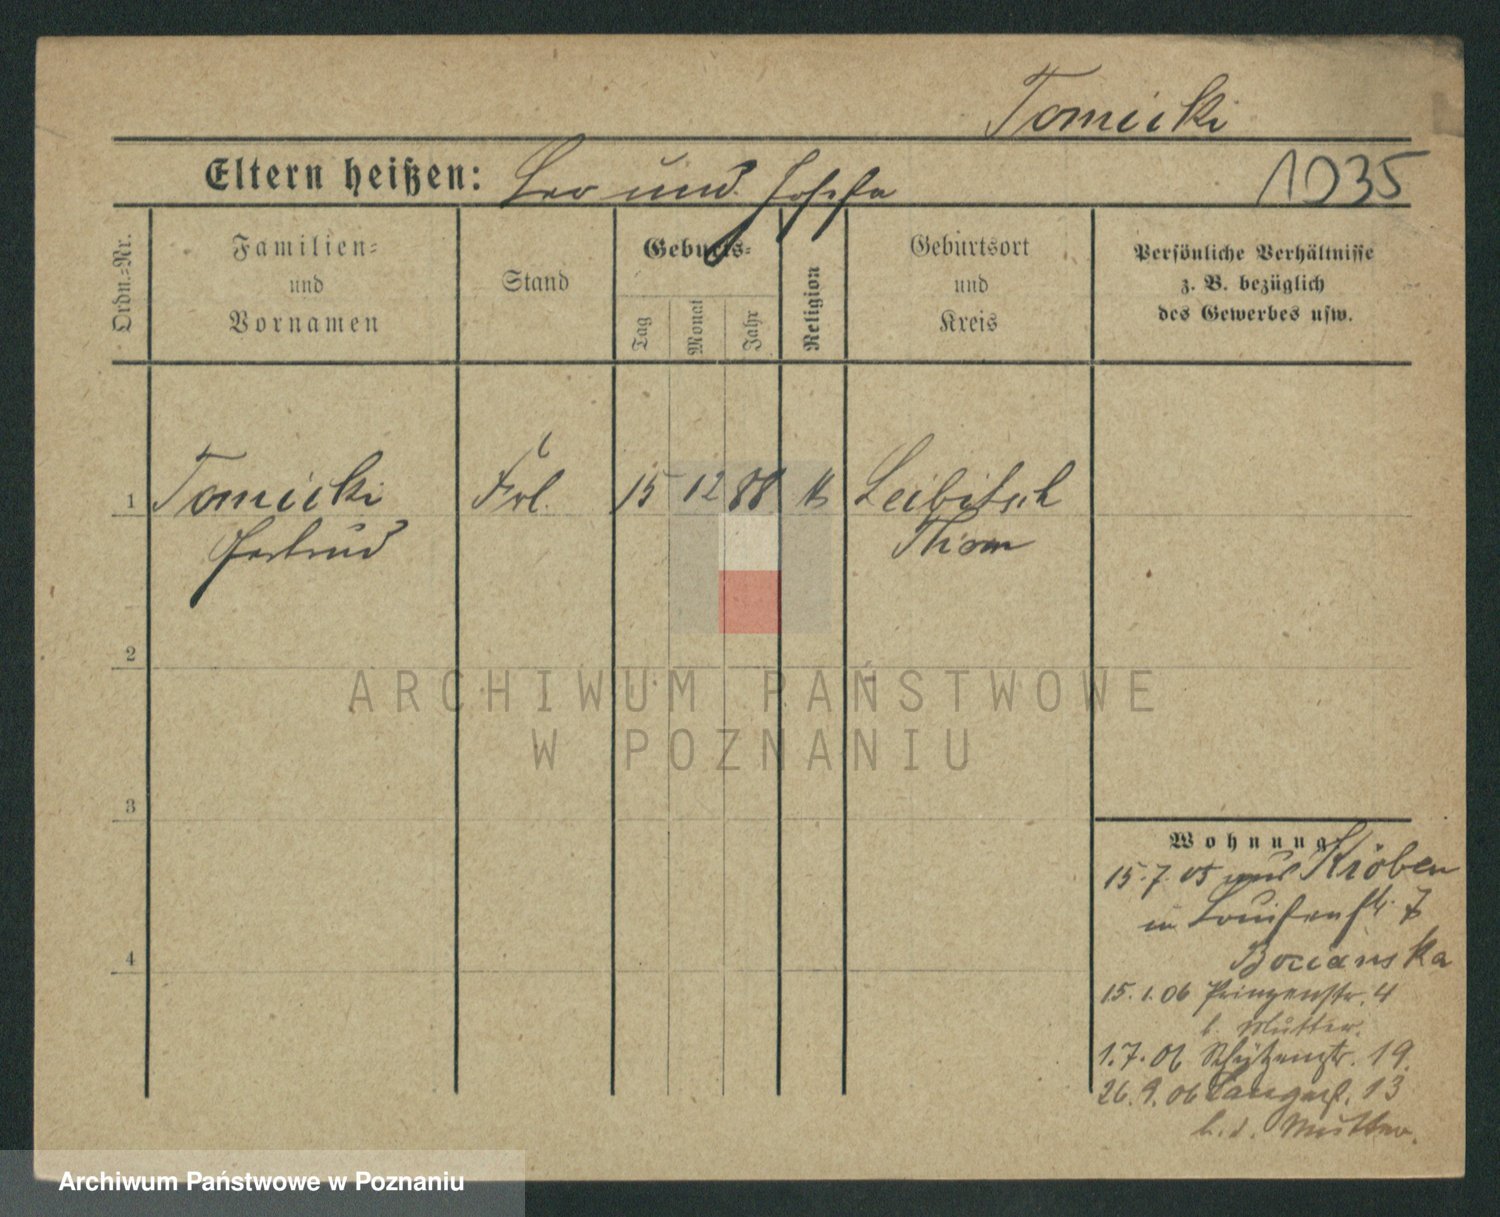 Tomicki
Eltern heißen: Leo und Josefa
1035
Ordn.-Nr.
Familien-
und
Vornamen
Stand
Geburts-
Tag
Monat
Jahr
Religion
Geburtsort
und
Kreis
Persönliche Verhältnisse
z. B. bezüglich
des Gewerbes usw.
1 Tomicki Frl. 15 12 88 k Leibitsch
Gertrud Thorn
2
3
4
Wohnung
15.7.05 aus Kröben
in Louisenstr. 7
Bocianska
15.1.06 Prinzenstr. 4
b. Mutter.
1.7.06 Schützenstr. 19
26.9.06 Langestr. 13
b. d. Mutter.
ARCHIWUM PAŃSTWOWE
W POZNANIU
Archiwum Państwowe w Poznaniu